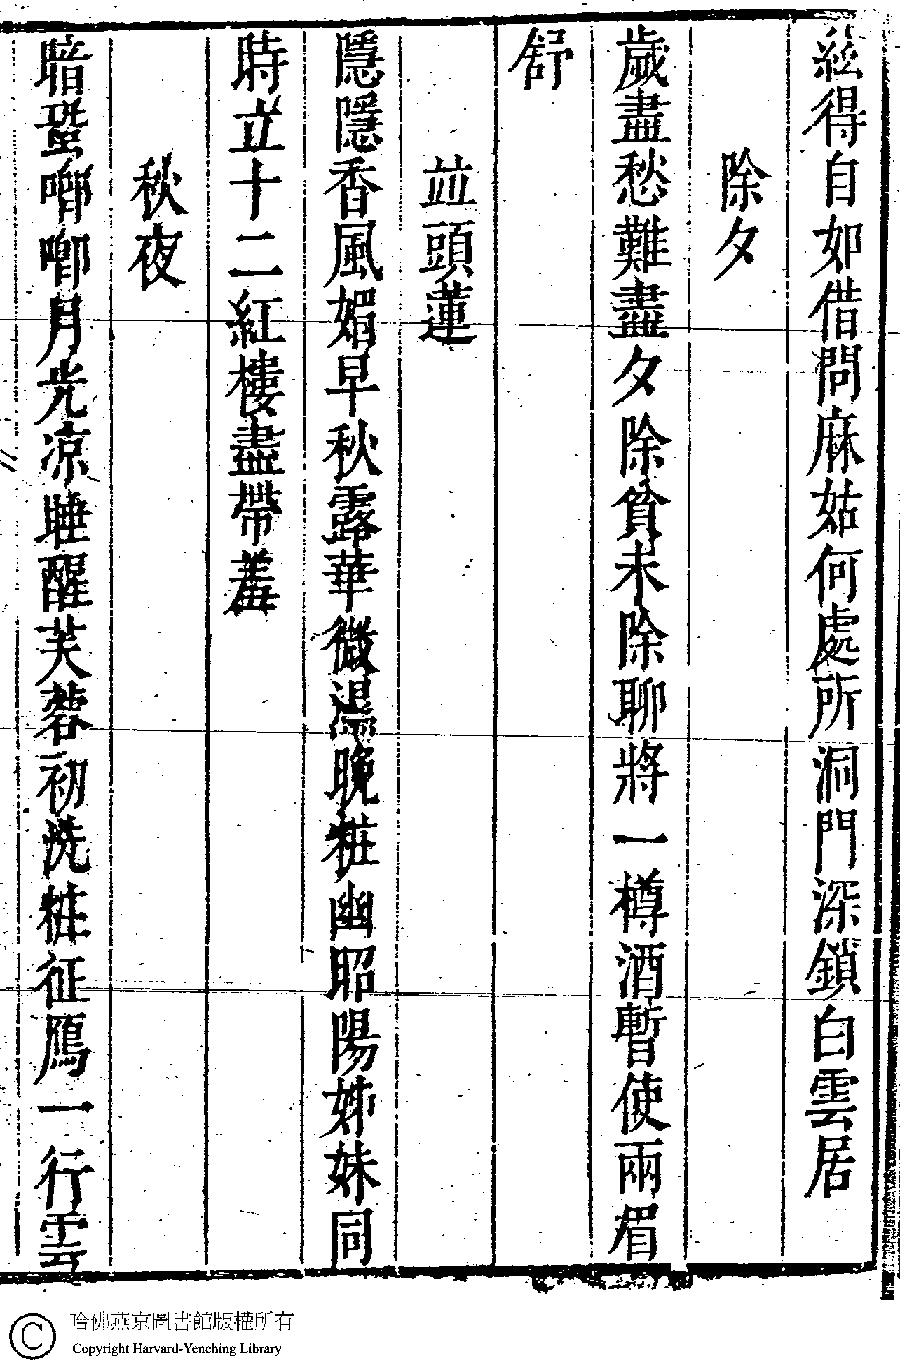 茲得自如借問麻姑何處所洞門深鎖白雲居
除夕
歲盡愁難盡夕除貧未除聊將一樽酒暫使兩眉
舒
並頭蓮
隱隱香風媚早秋露華微濕晚粧幽昭陽姊妹同
時立十二紅樓盡帶羞
秋夜
暗蛩唧唧月光凉睡醒芙蓉初洗粧征鴈一行雲
哈佛燕京圖書館版權所有
© Copyright Harvard-Yenching Library